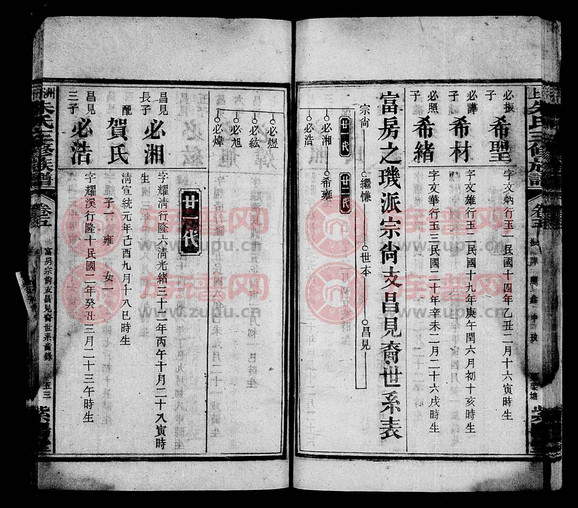 上洲朱氏三修族譜
卷五
必振
子
希聖
字文炳行玉一民國十四年乙丑二月十六寅時生
必譁
子
希材
字文雄行玉二民國十九年庚午閏六月初十亥時生
必照
子
希緒
字文華行玉三民國二十年辛未二月二十六戌時生
富房之璣派宗尙支昌見裔世系表
宗尙
繼慷
世本
昌見
廿一代
廿二代
必湘
希雍
必浩
必煙
必紘
必旭
必煒
廿一代
昌見
長子
必湘
字耀清行隆六清光緒三十二年丙午十月二十八寅時生
配
賀氏
清宣統元年己酉九月十八巳時生
子一
雍
女一
昌見
三子
必浩
字耀溪行隆十民國二年癸丑三月二十三午時生
朱氏三修族譜
卷五
富房宗尙支昌見裔世系齒錄
五三
紫
族譜网
www.zupu.cn